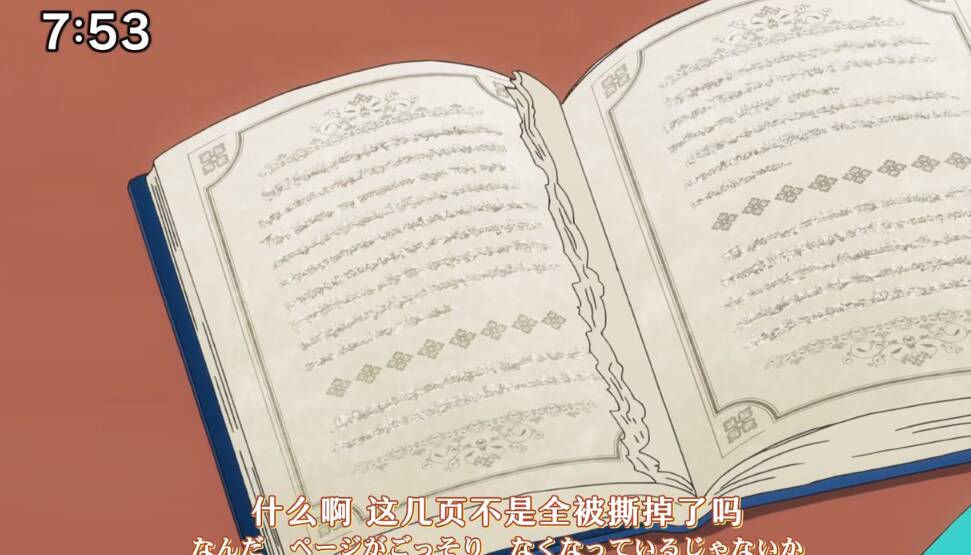 7:53
什么啊 这几页不是全被撕掉了吗
なんだ ページがごっそり なくなっているじゃないか